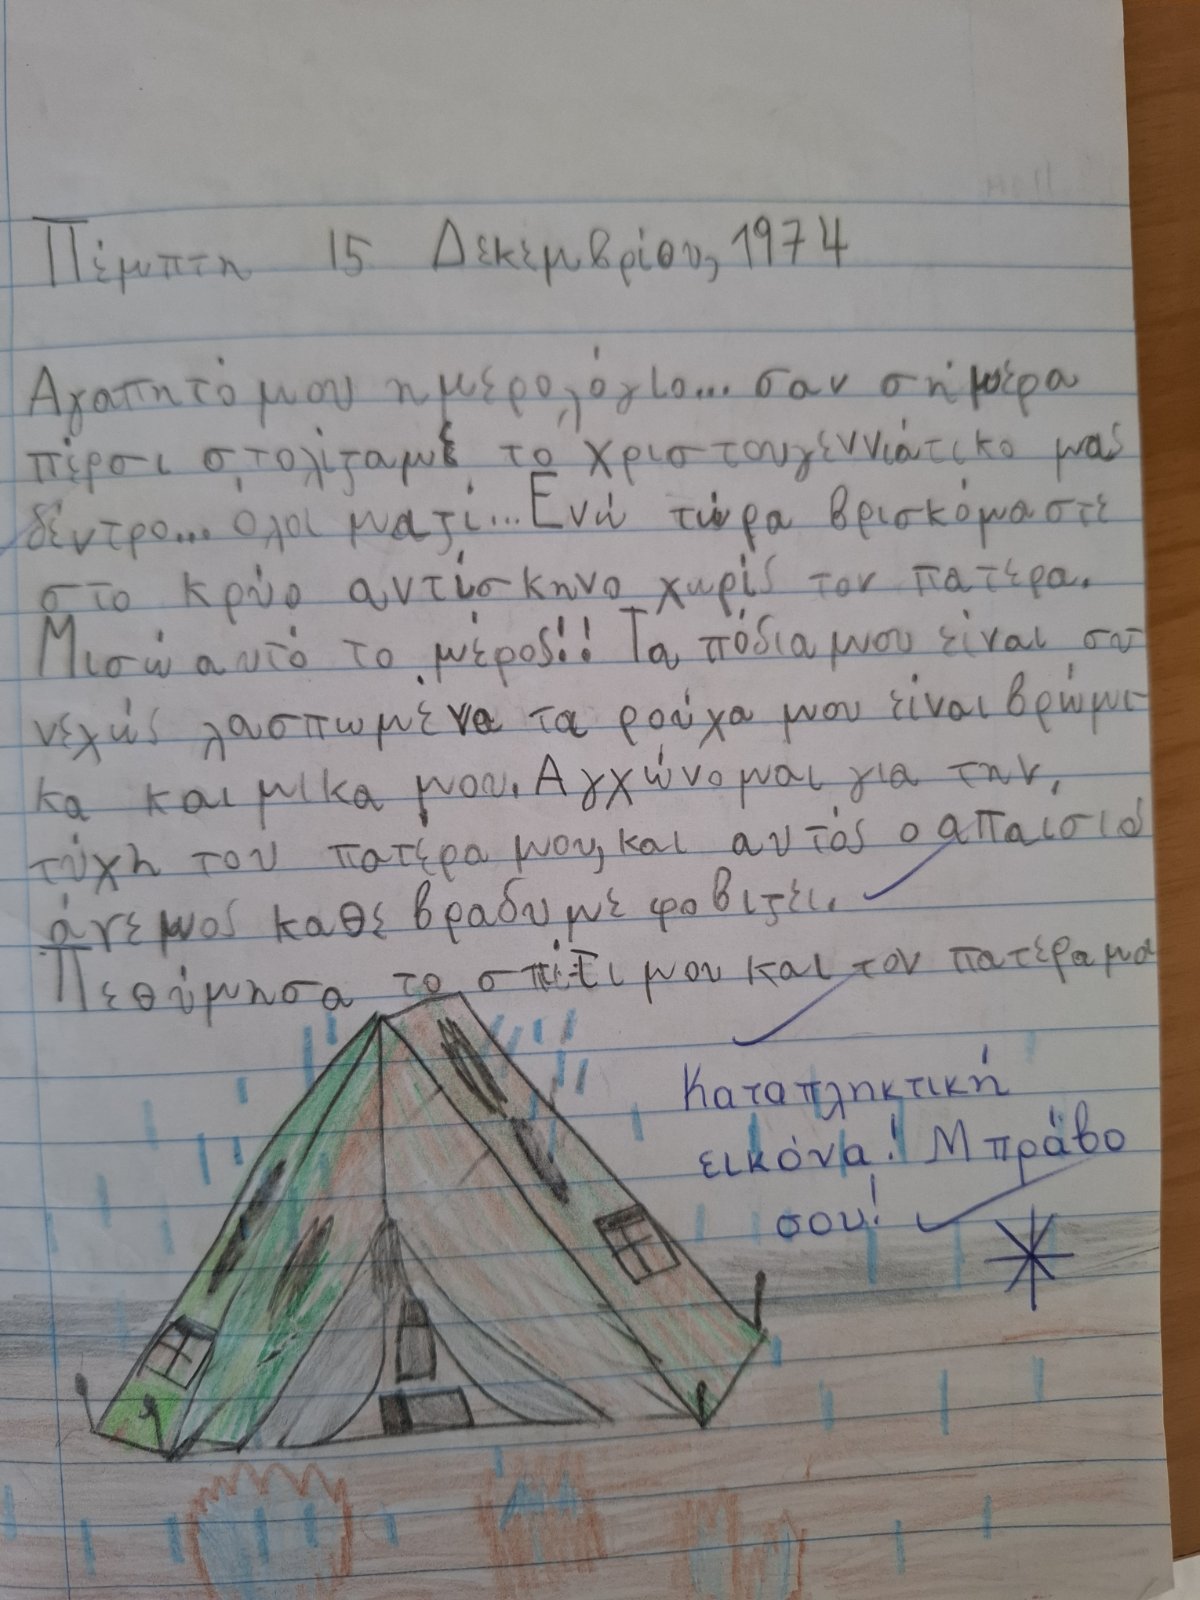 Πέμπτη 15 Δεκεμβρίου, 1974
Αγαπητό μου ημερολόγιο... σαν σήμερα
πέρσι στολίζαμε το χριστουγεννιάτικο μας
δέντρο... όλοι μαζί... Ενώ τώρα βρισκόμαστε
στο κρύο αντίσκηνο χωρίς τον πατέρα.
Μισώ αυτό το μέρος!! Τα πόδια μου είναι συ
νεχώς λασπωμένα τα ρούχα μου είναι βρώμι-
κα και μικα μου. Αγχώνομαι για την
τύχη του πατέρα μου, και αυτός ο απαίσιο
άνεμος καθε βραδυ με φοβιζει.
Πεθύμησα το σπίτι μου και τον πατέρα μα
Καταπληκτική
εικόνα! Μπράβο
σου!